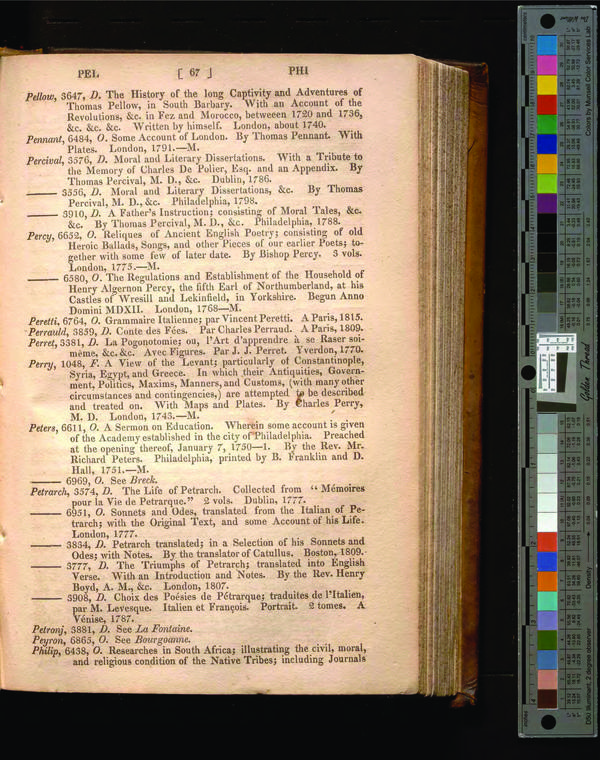 PEL [ 67 ] PHI
Pellow, 3647, D. The History of the long Captivity and Adventures of
Thomas Pellow, in South Barbary. With an Account of the
Revolutions, &c. in Fez and Morocco, betweeen 1720 and 1736,
&c. &c. &c. Written by himself. London, about 1740.
Pennant, 6484, O. Some Account of London. By Thomas Pennant. With
Plates. London, 1791.—M.
Percival, 3576, D. Moral and Literary Dissertations. With a Tribute to
the Memory of Charles De Polier, Esq. and an Appendix. By
Thomas Percival, M. D., &c. Dublin, 1786.
——— 3556, D. Moral and Literary Dissertations, &c. By Thomas
Percival, M. D., &c. Philadelphia, 1798.
——— 3910, D. A Father's Instruction; consisting of Moral Tales, &c.
&c. By Thomas Percival, M. D., &c. Philadelphia, 1788.
Percy, 6652, O. Reliques of Ancient English Poetry; consisting of old
Heroic Ballads, Songs, and other Pieces of our earlier Poets; to-
gether with some few of later date. By Bishop Percy. 3 vols.
London, 1775.—M.
——— 6580, O. The Regulations and Establishment of the Household of
Henry Algernon Percy, the fifth Earl of Northumberland, at his
Castles of Wresill and Lekinfield, in Yorkshire. Begun Anno
Domini MDXII. London, 1768—M.
Peretti, 6764, O. Grammaire Italienne; par Vincent Peretti. A Paris, 1815.
Perrauld, 3859, D. Conte des Fées. Par Charles Perraud. A Paris, 1809.
Perret, 3381, D. La Pogonotomie; ou, l'Art d'apprendre à se Raser soi-
même, &c. &c. Avec Figures. Par J. J. Perret. Yverdon, 1770.
Perry, 1048, F. A View of the Levant; particularly of Constantinople,
Syria, Egypt, and Greece. In which their Antiquities, Govern-
ment, Politics, Maxims, Manners, and Customs, (with many other
circumstances and contingencies,) are attempted to be described
and treated on. With Maps and Plates. By Charles Perry,
M. D. London, 1743.—M.
Peters, 6611, O. A Sermon on Education. Wherein some account is given
of the Academy established in the city of Philadelphia. Preached
at the opening thereof, January 7, 1750—1. By the Rev. Mr.
Richard Peters. Philadelphia, printed by B. Franklin and D.
Hall, 1751.—M.
——— 6969, O. See Breck.
Petrarch, 3574, D. The Life of Petrarch. Collected from "Mémoires
pour la Vie de Petrarque." 2 vols. Dublin, 1777.
——— 6951, O. Sonnets and Odes, translated from the Italian of Pe-
trarch; with the Original Text, and some Account of his Life.
London, 1777.
——— 3834, D. Petrarch translated; in a Selection of his Sonnets and
Odes; with Notes. By the translator of Catullus. Boston, 1809.
——— 3777, D. The Triumphs of Petrarch; translated into English
Verse. With an Introduction and Notes. By the Rev. Henry
Boyd, A. M., &c. London, 1807.
——— 3908, D. Choix des Poésies de Pétrarque; traduites de l'Italien,
par M. Levesque. Italien et François. Portrait. 2 tomes. A
Vénise, 1787.
Petronj, 3881, D. See La Fontaine.
Peyron, 6865, O. See Bourgoanne.
Philip, 6438, O. Researches in South Africa; illustrating the civil, moral,
and religious condition of the Native Tribes; including Journals
Golden Thread